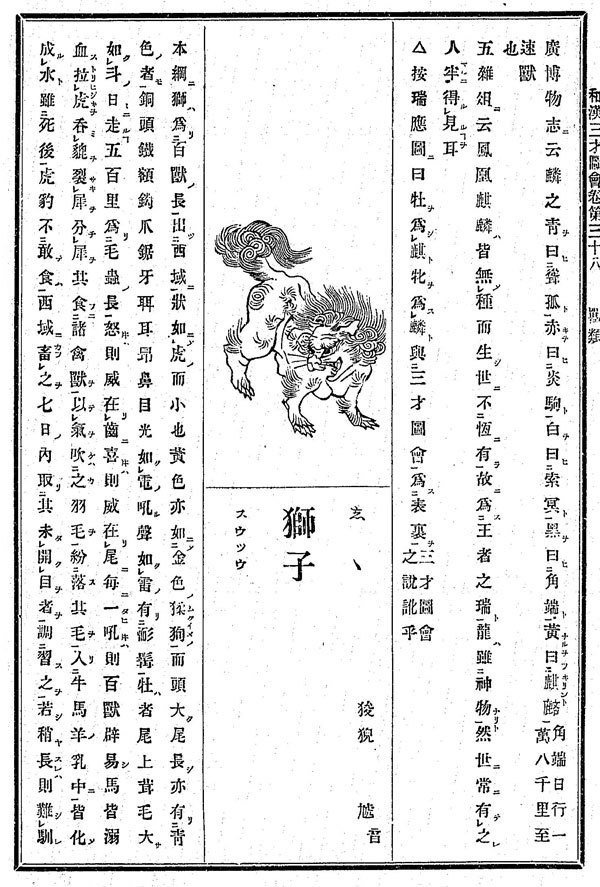 和漢三才圖會卷第三十八　獸類
廣博物志云麟之青曰聳孤赤曰炎駒白曰索冥黑曰角端黃曰麒麟角端日行一萬八千里至
速獸
也
五雜俎云鳳凰麒麟皆無種而生世不恆有故爲王者之瑞龍雖神物然世常有之
人罕得見耳
△按瑞應圖曰牡爲麒牝爲麟與三才圖會爲表裏三才圖會之說訛乎
獅子
スウツウ
狻猊
虓音
本綱獅爲百獸長出西域狀如虎而小也黃色亦如金色猱狗而頭大尾長亦有青
色者銅頭鐵額鈎爪鋸牙弭耳昂鼻目光如電吼聲如雷有耏髯牡者尾上茸毛大
如斗日走五百里爲毛蟲長怒則威在齒喜則威在尾每一吼則百獸辟易馬皆溺
血拉虎吞貔裂犀分犀其食諸禽獸以氣吹之羽毛紛落其毛入牛馬羊乳中皆化
成水雖死後虎豹不敢食西域畜之七日內取其未開目者調習之若稍長則難馴